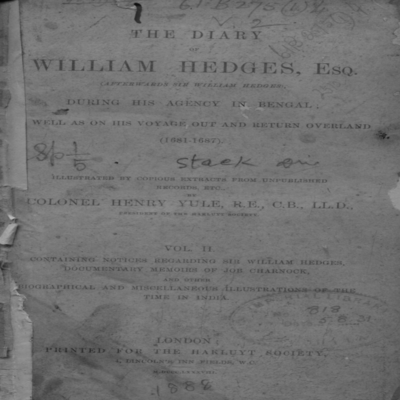 THE DIARY
OF
WILLIAM HEDGES, Esq.
(AFTERWARDS SIR WILLIAM HEDGES)
DURING HIS AGENCY IN BENGAL;
WELL AS ON HIS VOYAGE OUT AND RETURN OVERLAND
(1681-1687).
ILLUSTRATED BY COPIOUS EXTRACTS FROM UNPUBLISHED
RECORDS, ETC.,
BY
COLONEL HENRY YULE, R.E., C.B., LL.D.,
PRESIDENT OF THE HAKLUYT SOCIETY.
VOL. II.
CONTAINING NOTICES REGARDING SIR WILLIAM HEDGES,
DOCUMENTARY MEMOIRS OF JOB CHARNOCK,
AND OTHER
BIOGRAPHICAL AND MISCELLANEOUS ILLUSTRATIONS OF THE
TIME IN INDIA.
LONDON:
PRINTED FOR THE HAKLUYT SOCIETY,
4, LINCOLN'S INN FIELDS, W.C.